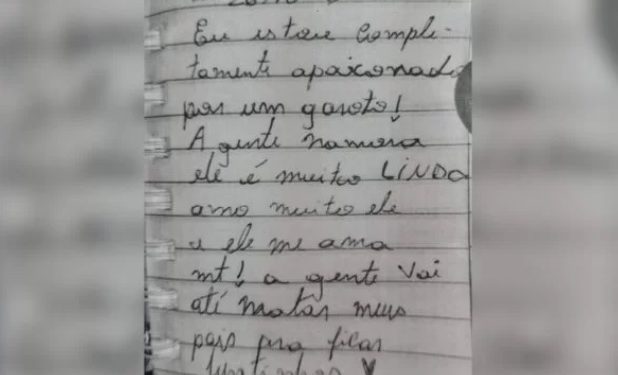 Eu estou comple-
tamente apaixonada
por um garoto!
A gente namora
ele é muito LINDO
amo muito ele
e ele me ama
mt! a gente vai
até matar meus
pais pra ficar
juntinhos